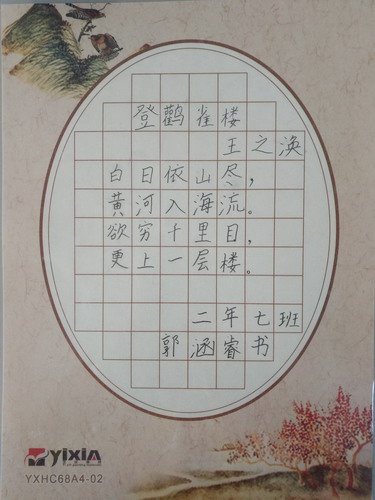 登鹳雀楼
王之涣
白日依山尽，
黄河入海流。
欲穷千里目，
更上一层楼。
二年七班
郭涵睿书
yixin
YXHC68A4-02